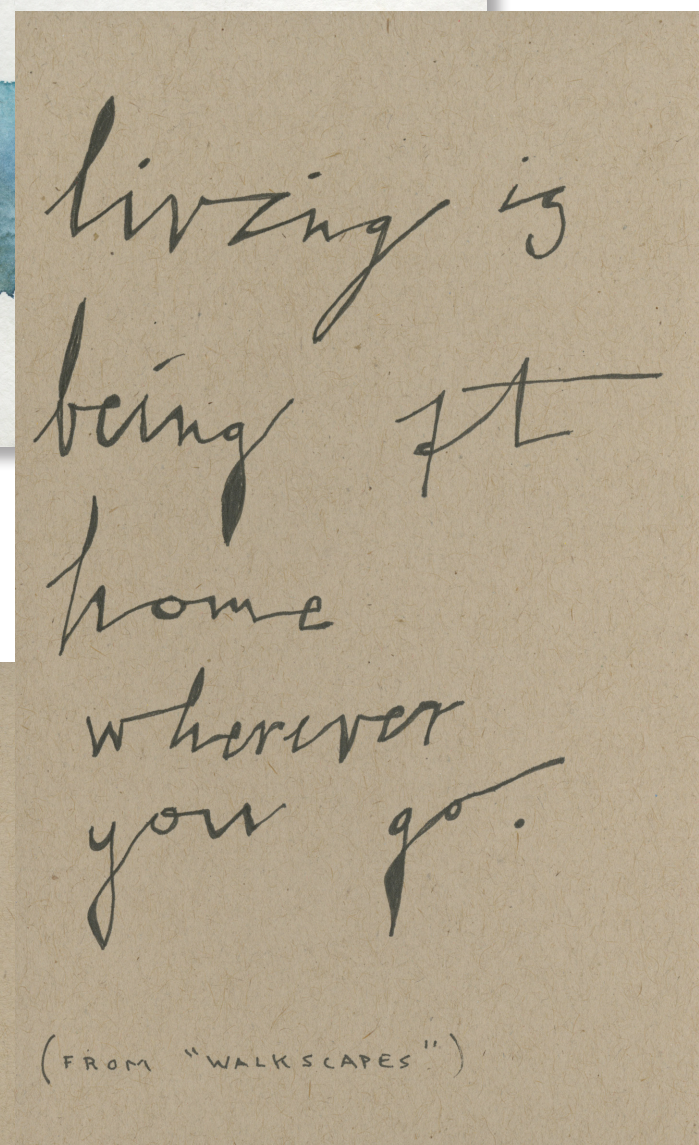 living is
being at
home
wherever
you go.
(FROM "WALKSCAPES")